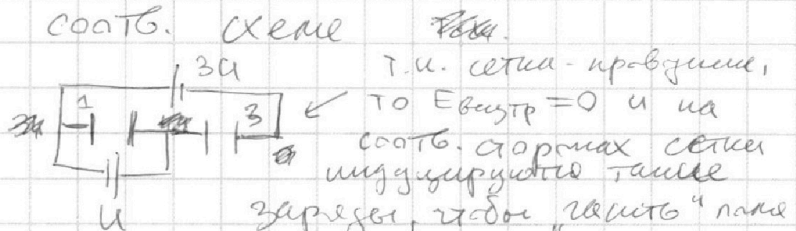 соотв. схеме
3U
т.к. сетка - проводник,
1 3
то Eвнутр = 0 и на
соотв. сторонах сетки
индуцируются такие
U
заряды, чтобы "гасить" поле